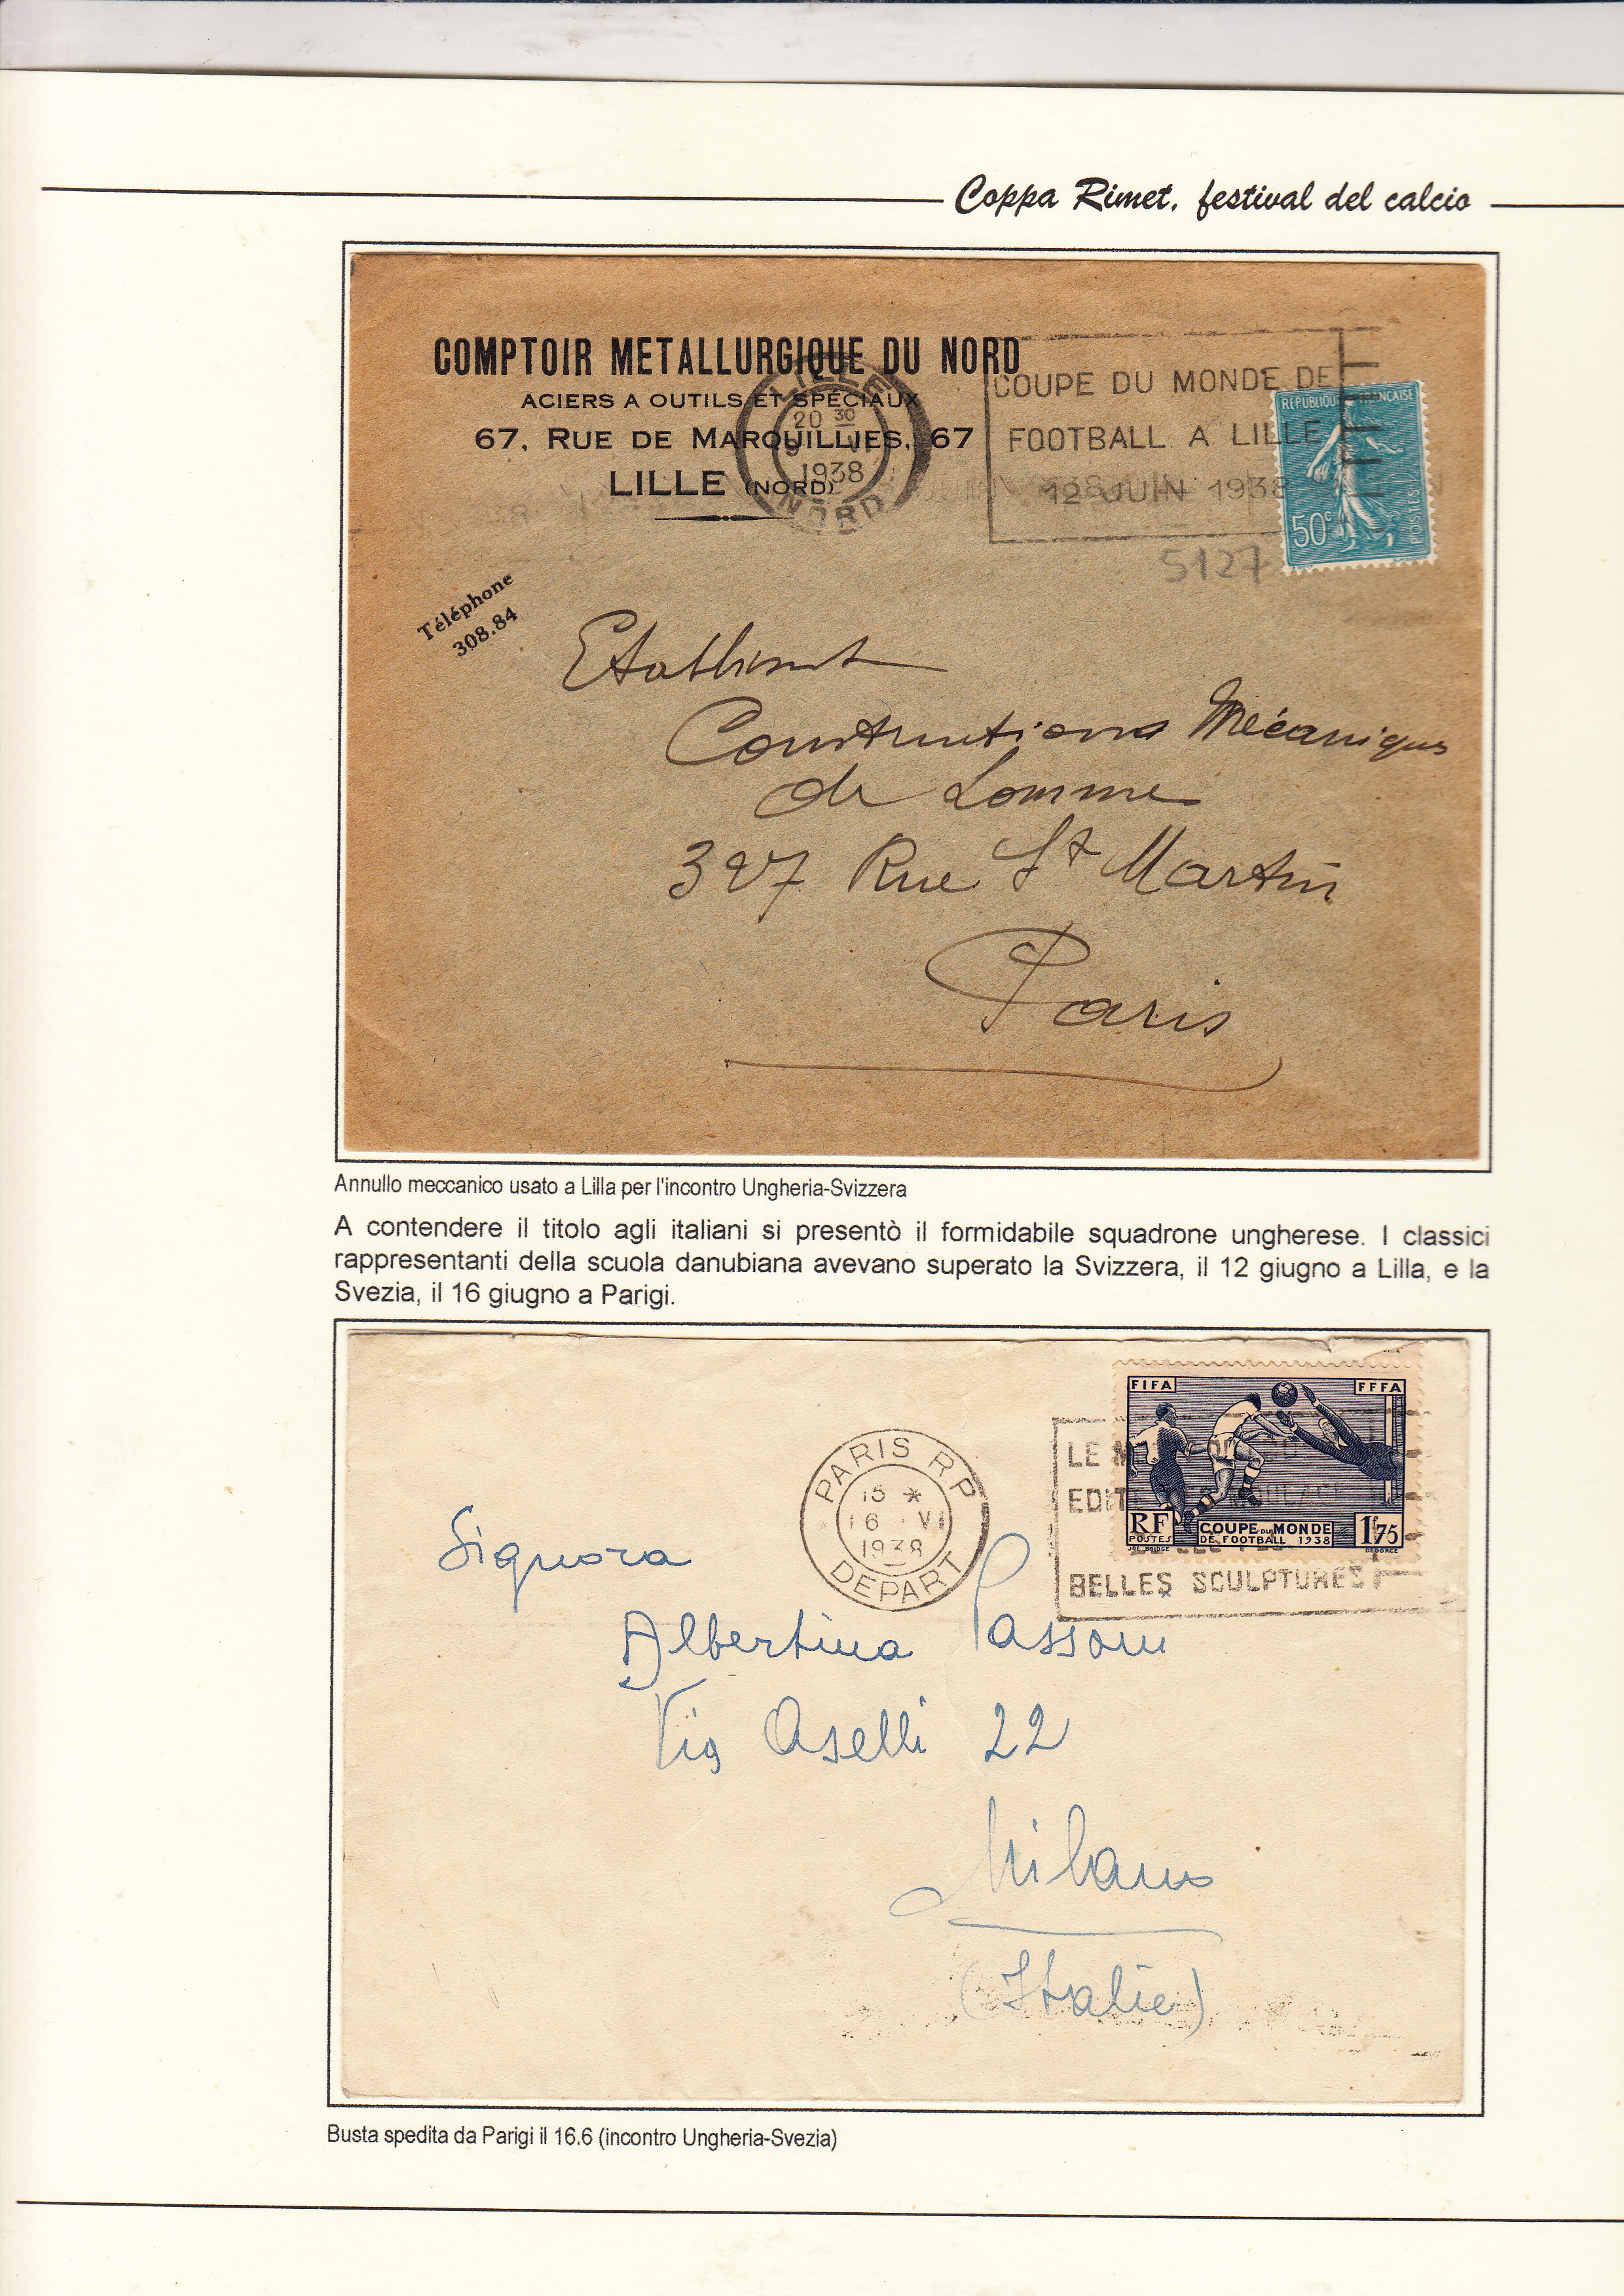 Coppa Rimet, festival del calcio
COMPTOIR METALLURGIQUE DU NORD
ACIERS A OUTILS ET SPÉCIAUX
67, RUE DE MARQUILLIES, 67
LILLE (NORD)
Téléphone
308.84
LILLE
20 30
9 VI
1938
NORD
COUPE DU MONDE DE
FOOTBALL A LILLE
12 JUIN 1938
REPUBLIQUE FRANCAISE
50c
POSTES
5127
Constructions Mécaniques
de Lomme
327 Rue St Martin
Paris
Annullo meccanico usato a Lilla per l'incontro Ungheria-Svizzera
A contendere il titolo agli italiani si presentò il formidabile squadrone ungherese. I classici
rappresentanti della scuola danubiana avevano superato la Svizzera, il 12 giugno a Lilla, e la
Svezia, il 16 giugno a Parigi.
FIFA
FFFA
RF
POSTES
COUPE DU MONDE
DE FOOTBALL 1938
1f75
JOE BRIDGE
DEGORCE
PARIS R.P
15 *
16 VI
1938
DEPART
LE
BELLES SCULPTURES
Signora
Albertina Passoni
Via Aselli 22
Milano
(Italie)
Busta spedita da Parigi il 16.6 (incontro Ungheria-Svezia)